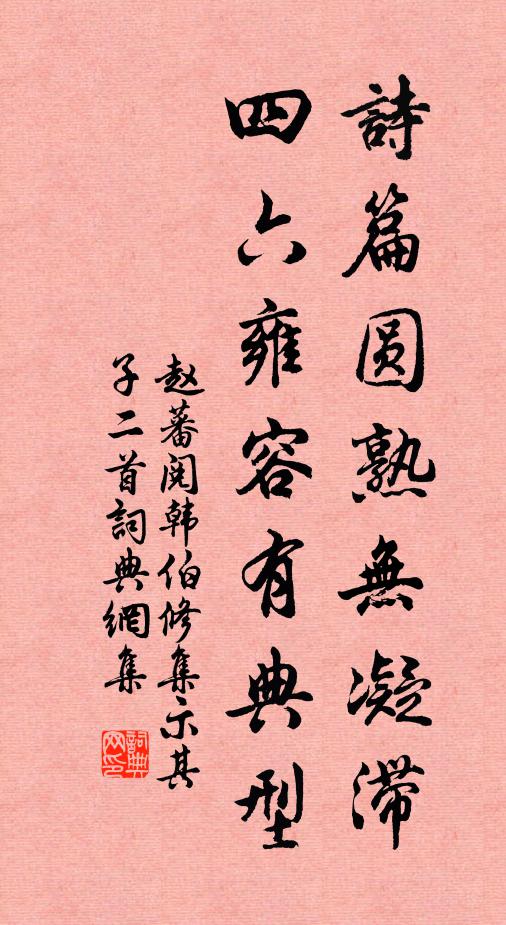 詩篇圆熟無凝滯
四六雍容有典型
赵蕃阅韩伯修集示其
子二首詞典網集
詞典
网印